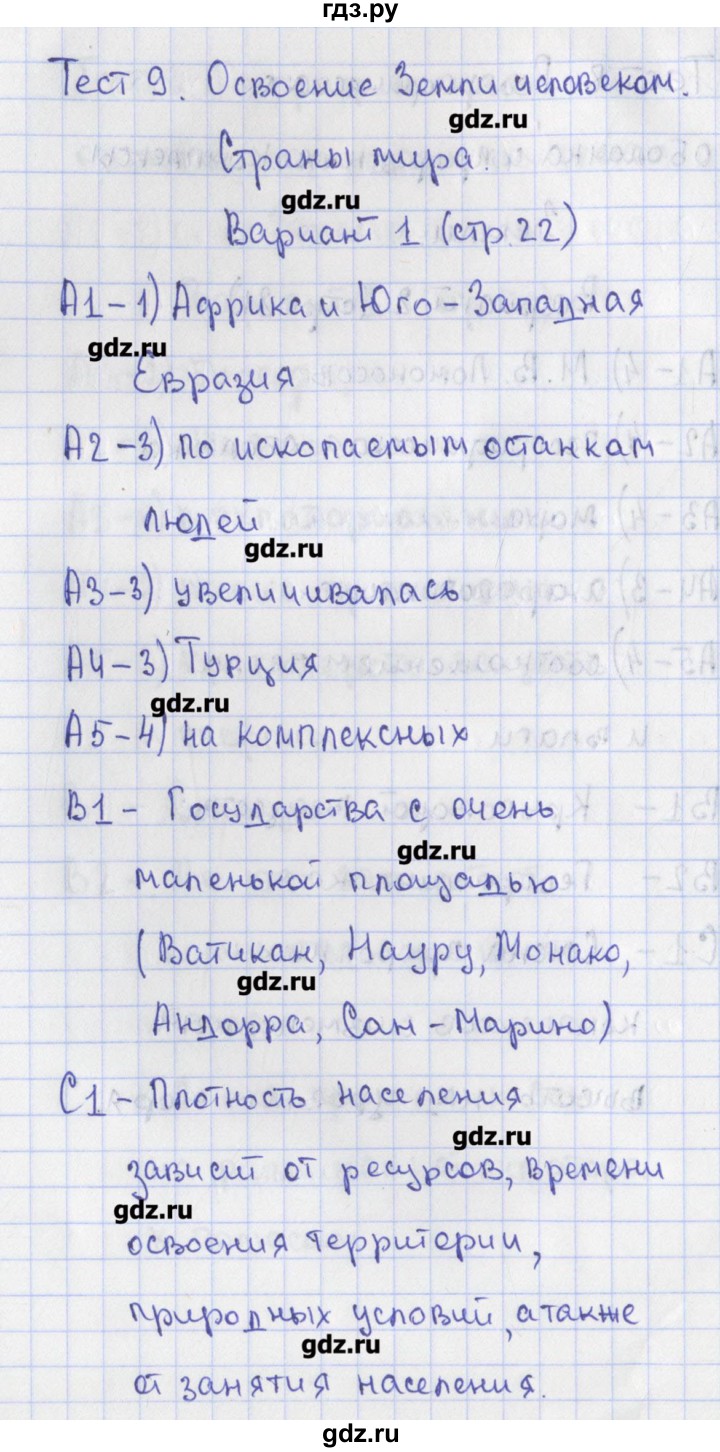 гдз.ру
Тест 9. Освоение Земли человеком.
gdz.ru
Страны мира.
gdz.ru
Вариант 1 (стр.22)
А1-1) Африка и Юго-Западная
gdz.ru
Евразия
А2-3) по ископаемым останкам
людей
gdz.ru
А3-3) увеличивалась
А4-3) Турция
gdz.ru
А5-4) на комплексных
В1- Государства с очень
gdz.ru
маленькой площадью
(Ватикан, Науру, Монако,
gdz.ru
Андорра, Сан-Марино)
С1-Плотность населения
gdz.ru
зависит от ресурсов, времени
gdz.ru
освоения территории,
природных условий, а также
gdz.ru
от занятия населения.
gdz.ru